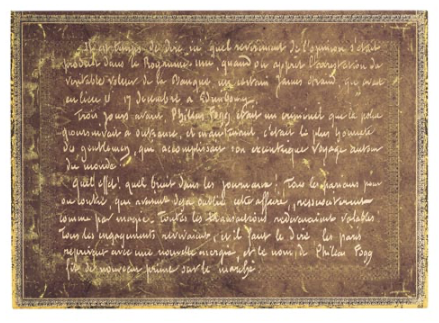 Il est temps de dire ici quel revirement de l'opinion s'était
produit dans le Royaume-Uni, quand on apprit l'arrestation du
véritable voleur de la Banque un certain James Strand, qui avait
eu lieu le 17 décembre à Edimbourg.
Trois jours avant, Phileas Fogg était un criminel que la police
poursuivait à outrance, et maintenant c'était le plus honnête
des gentlemen, qui accomplissait son excentrique voyage autour
du monde.
Quel effet, quel bruit dans les journaux! Tous les parieurs pour
ou contre, qui avaient déjà oublié cette affaire, ressuscitèrent
comme par magie. Toutes les transactions redevenaient valables.
Tous les engagements revivaient, et il faut le dire, les paris
reprirent avec une nouvelle énergie et le nom de Phileas Fogg
fit de nouveau prime sur le marché